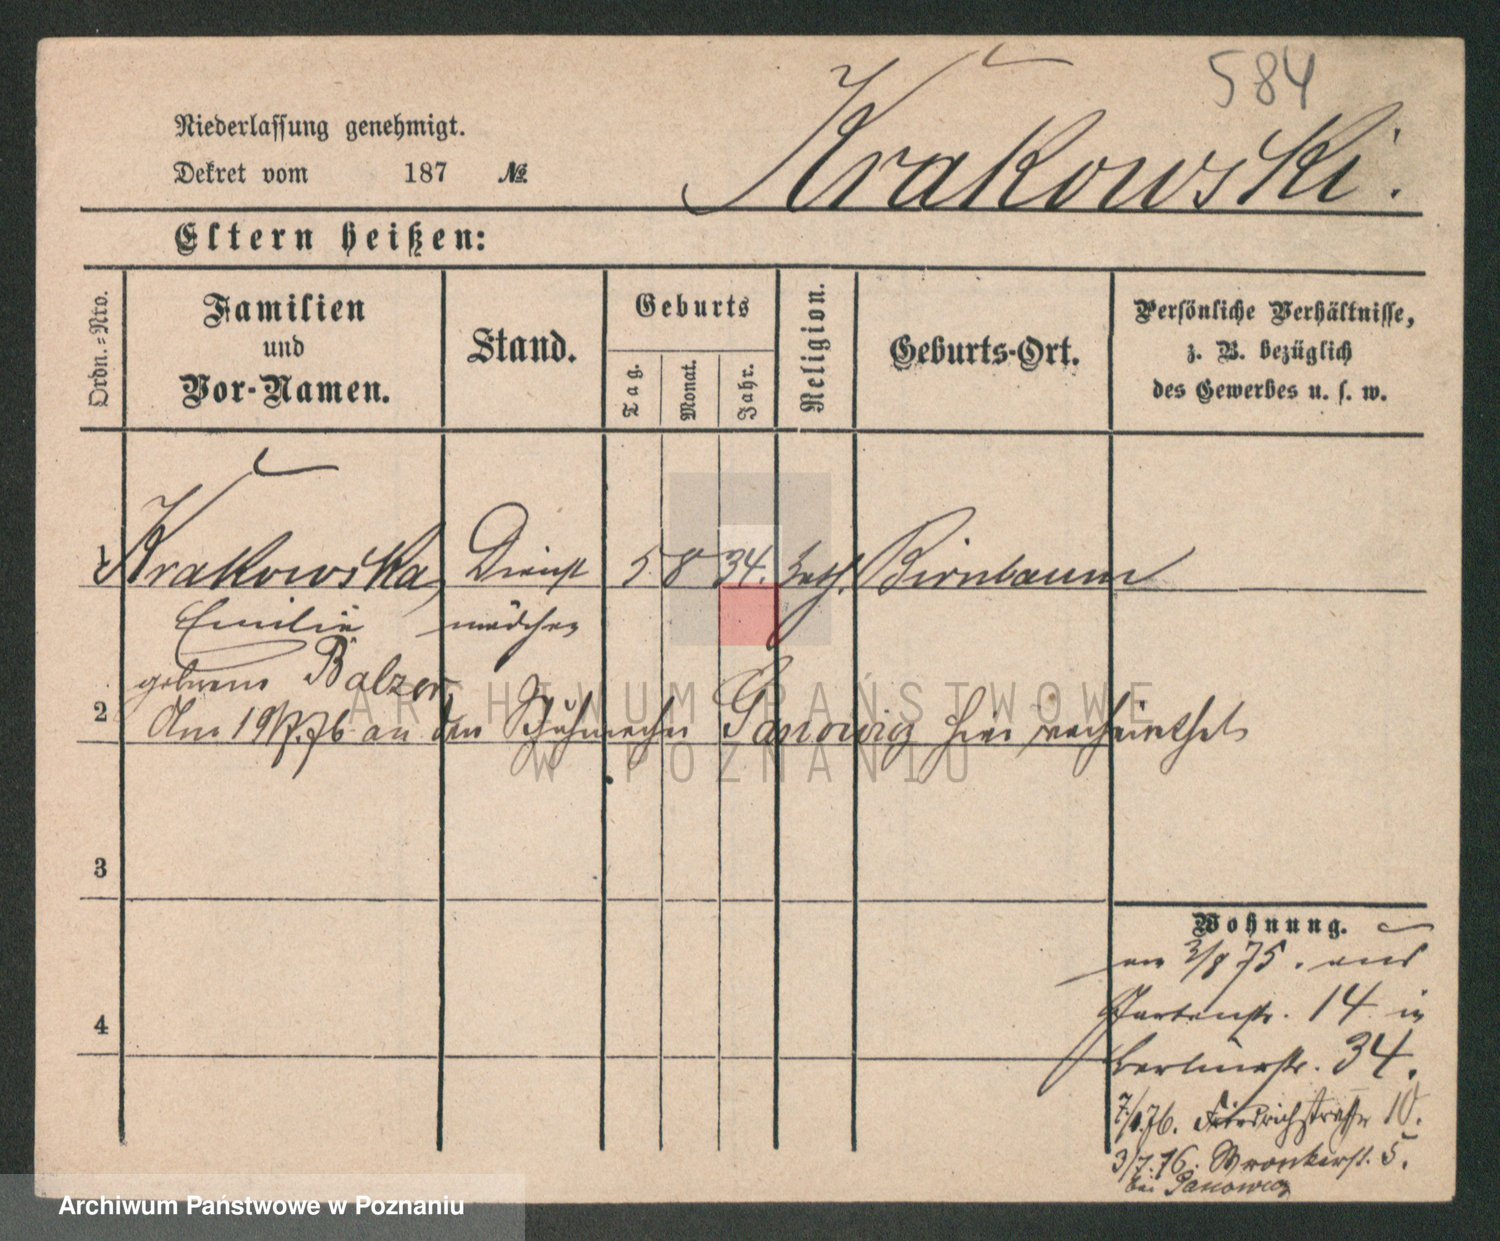 584
Niederlassung genehmigt.
Krakowski.
Dekret vom 187 №
Eltern heißen:
Ordn.-Nro.
Familien
und
Vor-Namen.
Stand.
Geburts
Tag.
Monat.
Jahr.
Religion.
Geburts-Ort.
Persönliche Verhältnisse,
z. B. bezüglich
des Gewerbes u. s. w.
1 Krakowska, Dienst 5 8 34. kath. Birnbaum
Emilie mädchen
geborene Balzer
2 Am 19/7.76 an den Schuhmacher Janowicz hier verheirathet
3
Wohnung.
am 3/8 75. aus
Gartenstr. 14 in
4
Berlinerstr. 34.
7/1.76. Friedrichstraße 10.
3/7.76. Wronkerst. 5.
bei Janowicz
ARCHIWUM PAŃSTWOWE
W POZNANIU
Archiwum Państwowe w Poznaniu